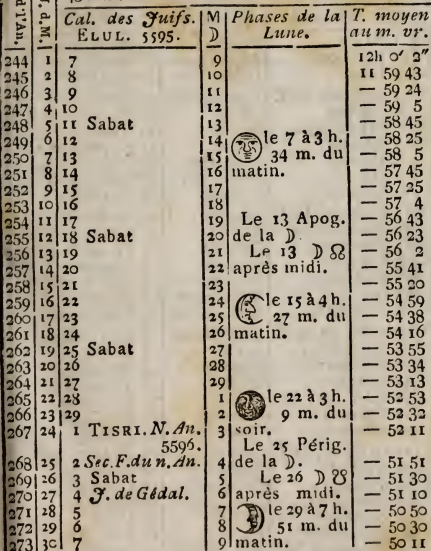 d'An. J. d. M. Cal. des Juifs. M Phases de la T. moyen
ELUL. 5595. ☽ Lune. au m. vr.
244 1 7 9 12h 0' 2"
245 2 8 10 11 59 43
246 3 9 11 — 59 24
247 4 10 12 — 59 5
248 5 11 Sabat 13 — 58 45
249 6 12 14 le 7 à 3 h. — 58 25
250 7 13 15 34 m. du — 58 5
251 8 14 16 matin. — 57 45
252 9 15 17 — 57 25
253 10 16 18 — 57 4
254 11 17 19 Le 13 Apog. — 56 43
255 12 18 Sabat 20 de la ☽. — 56 23
256 13 19 21 Le 13 ☽ ☊ — 56 2
257 14 20 22 après midi. — 55 41
258 15 21 23 — 55 20
259 16 22 24 le 15 à 4 h. — 54 59
260 17 23 25 27 m. du — 54 38
261 18 24 26 matin. — 54 16
262 19 25 Sabat 27 — 53 55
263 20 26 28 — 53 34
264 21 27 29 — 53 13
265 22 28 1 le 22 à 3 h. — 52 53
266 23 29 2 9 m. du — 52 32
267 24 1 TISRI. N. An. 3 soir. — 52 11
5596. Le 25 Périg.
268 25 2 Sec. F. du n. An. 4 de la ☽. — 51 51
269 26 3 Sabat 5 Le 26 ☽ ☋ — 51 30
270 27 4 J. de Gédal. 6 après midi. — 51 10
271 28 5 7 le 29 à 7 h. — 50 50
272 29 6 8 51 m. du — 50 30
273 30 7 9 matin. — 50 11